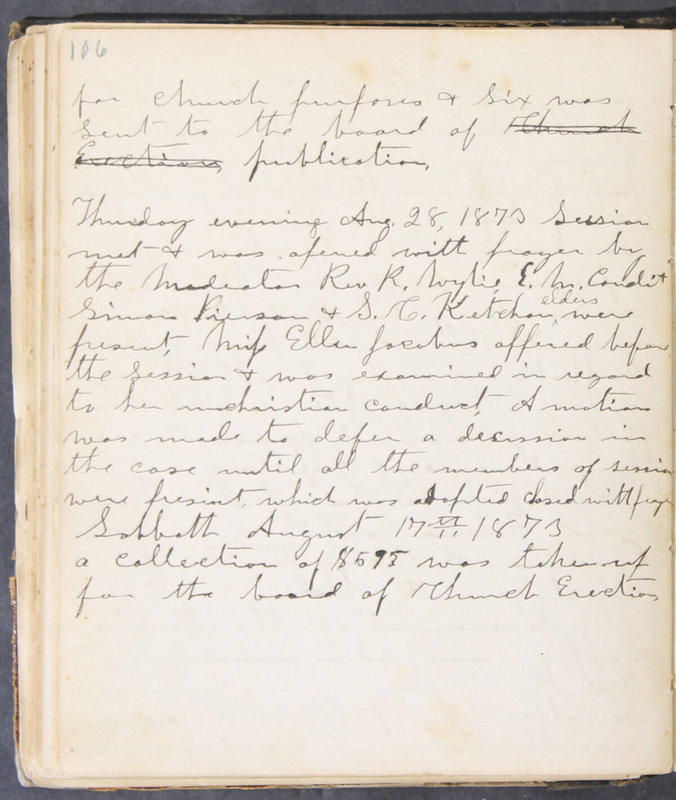 106
for church purposes & six was
sent to the board of Church
Erection, publication,
Thursday evening Aug. 28, 1873 Session
met & was opened with prayer by
the Moderator Rev R. Wylie, E. M. Condit
Simon Pierson & S. C. Ketcham, elders were
present, Miss Ellen Jacobus appered before
the session & was examined in regard
to her unchristian conduct, A motion
was made to defer a decission in
the case until all the members of session
were present, which was adopted closed with prayer
Sabbath August 17th 1873
a collection of $595 was taken up
for the board of Church Erection,